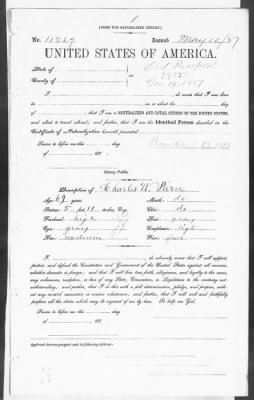 [FORM FOR NATURALIZED CITIZEN.]
No. 11527 Issued May 10/87
UNITED STATES OF AMERICA.
State of Old Passport
County of
I, do swear that I was born
in on the day
of; that I am a NATURALIZED AND LOYAL CITIZEN OF THE UNITED STATES,
and about to travel abroad; and further, that I am the Identical Person described in the
Certificate of Naturalization herewith presented.
Sworn to before me this
day of 188
Notary Public.
Description of Charles W. Pierce
Age: years Mouth: do
Stature: 5 feet 11 inches, Eng. Chin: do
Forehead: high Hair: gray
Eyes: gray Complexion: light
Nose: medium Face:
I, do solemnly swear that I will support,
protect, and defend the Constitution and Government of the United States against all enemies,
whether domestic or foreign; and that I will bear true faith, allegiance, and loyalty to the same,
any ordinance, resolution, or law of any State, Convention, or Legislature to the contrary not-
withstanding; and further, that I do this with a full determination, pledge, and purpose, with-
out any mental reservation or evasion whatsoever; and further, that I will well and faithfully
perform all the duties which may be required of me by law. So help me God.
Sworn to before me this
day of 188
Applicant desires passport sent to following address: